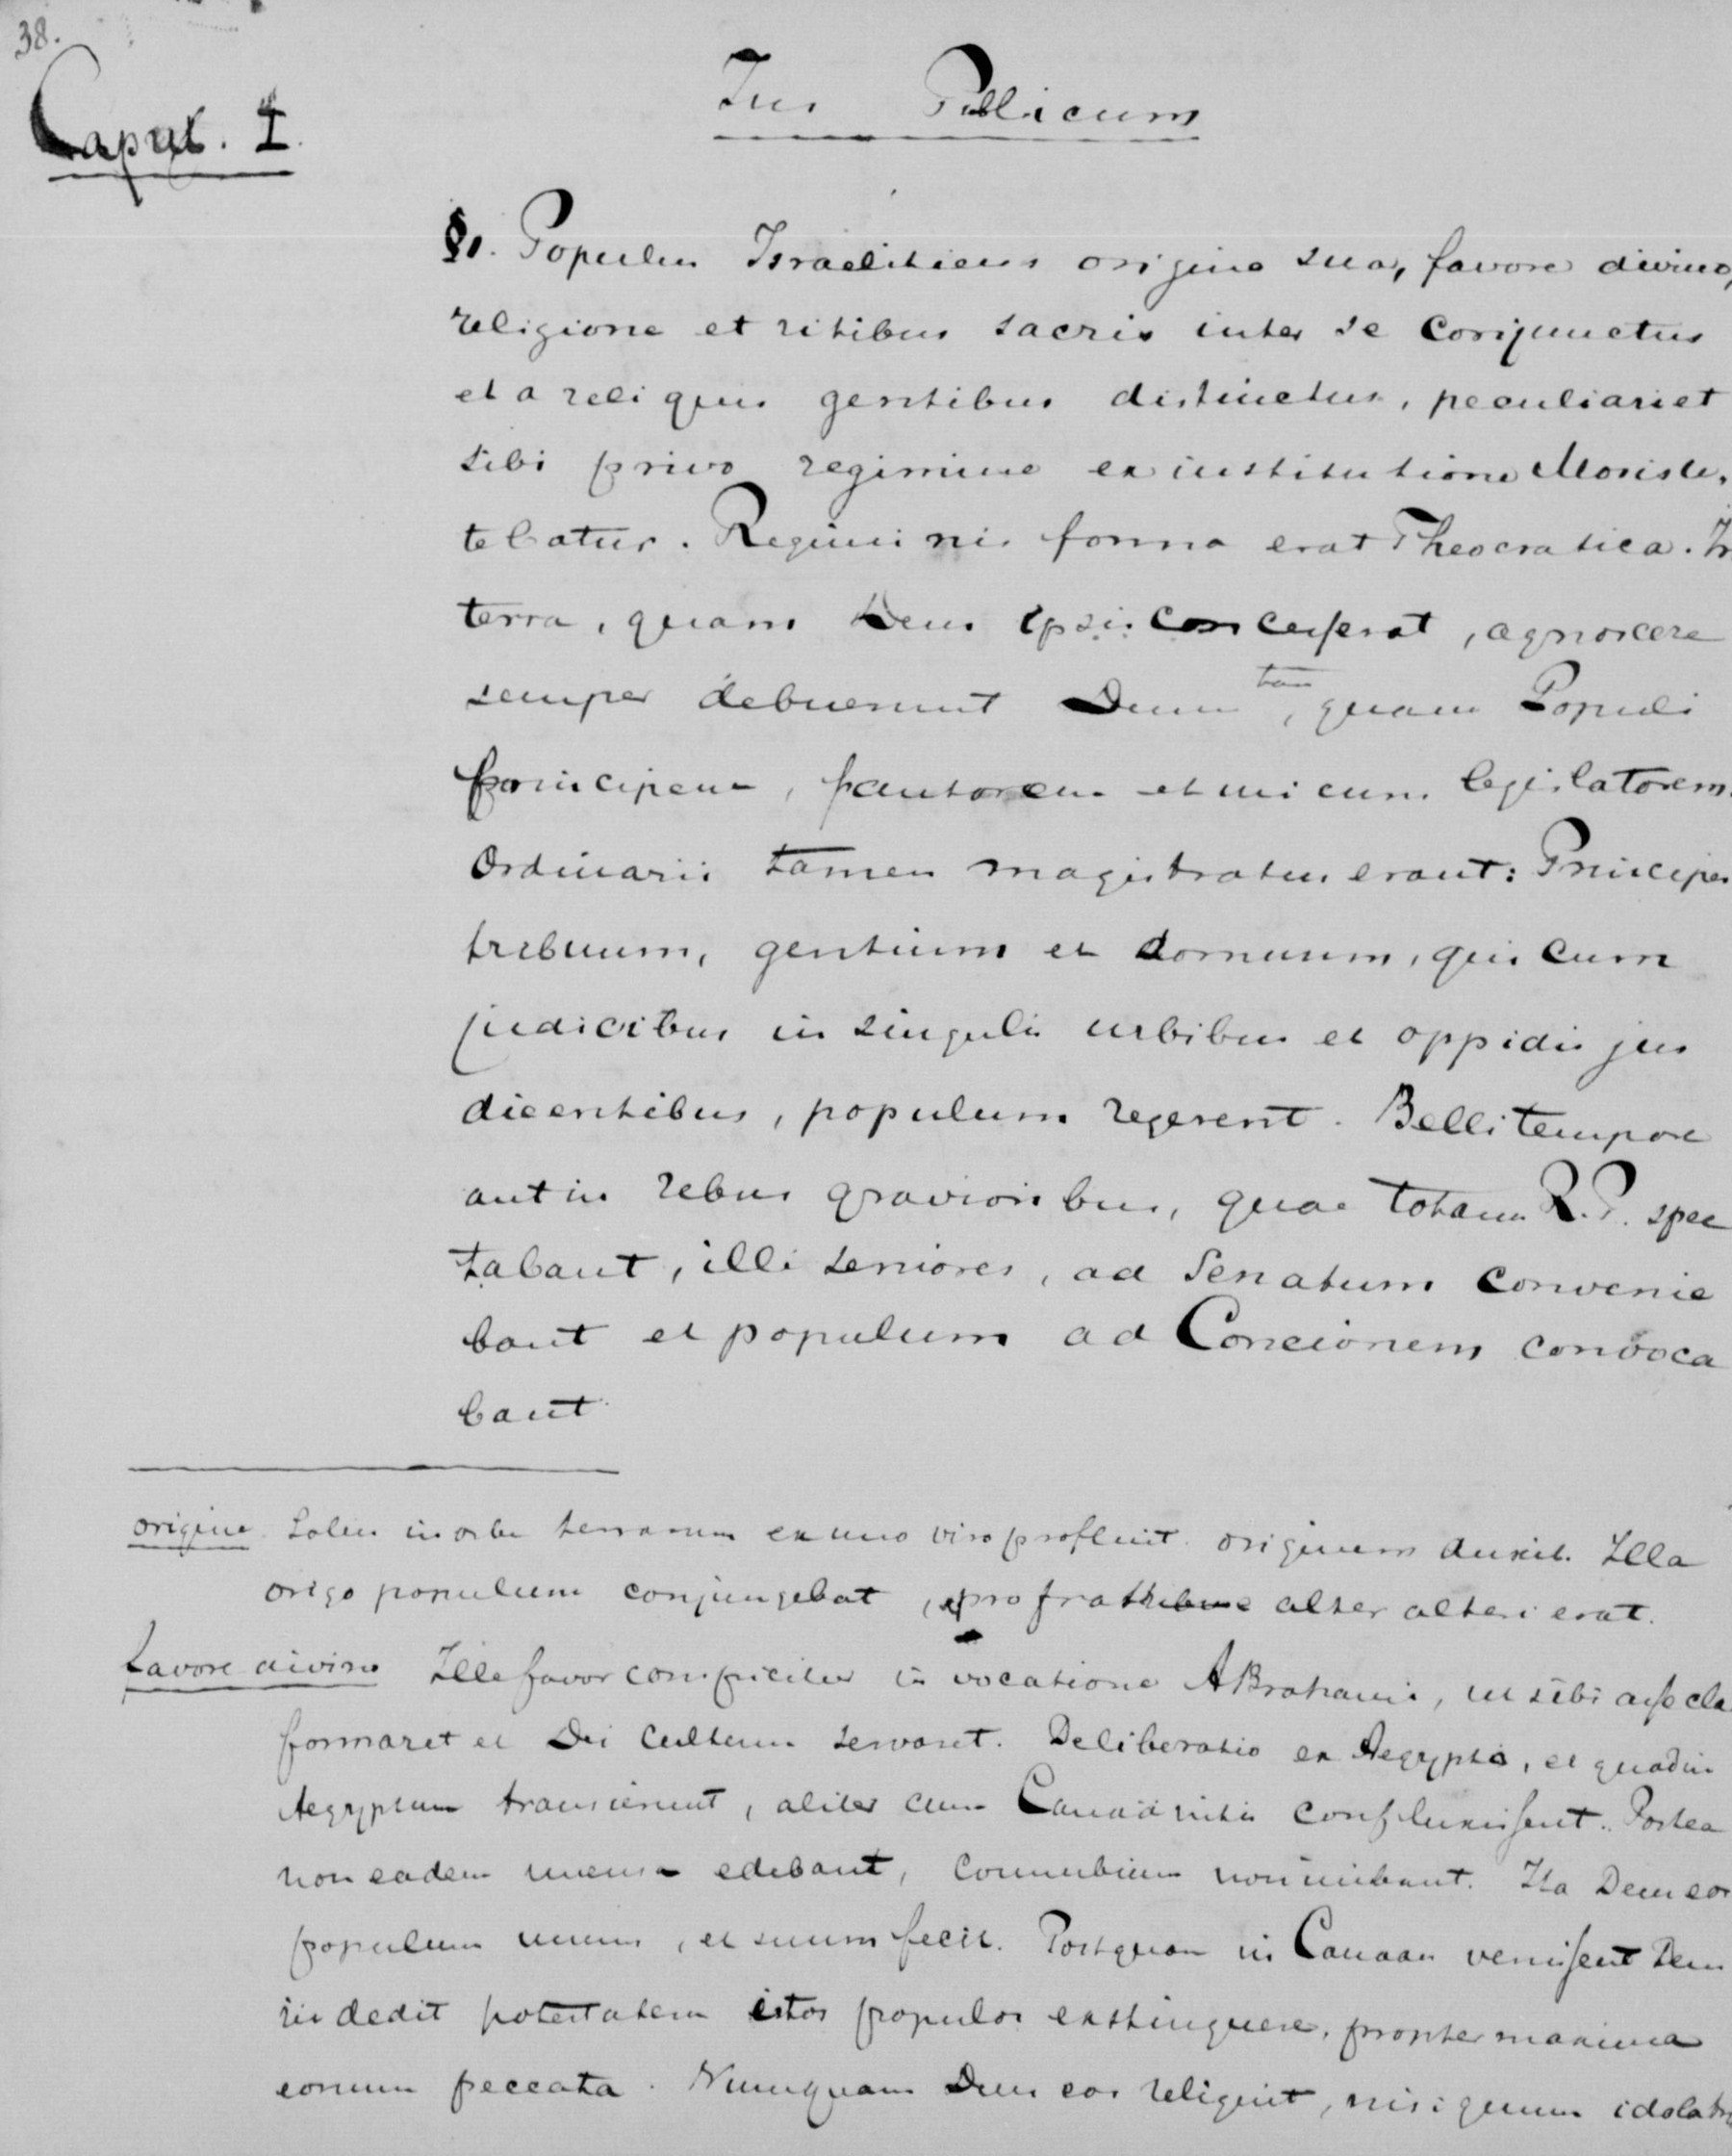 38.
Caput. I.
Ius Publicum
§1. Populus Israeliticus origine sua, favore divino,
religione et ritibus sacris inter se conjunctus
et a reliquis gentibus distinctus, peculiari et
sibi privo regimine ex institutione Mosis u,
tebatur. Regiminis forma erat Theocratica. In
terra, quam Deus ipsis concesserat, agnoscere
semper debuerunt Deum tan, quam Populi
principem, fautorem et unicum legislatorem.
Ordinarii tamen magistratus erant: Principes
tribuum, gentium et domuum, qui cum
judicibus in singulis urbibus et oppidis jus
dicentibus, populum regerent. Belli tempore
aut in rebus gravioribus, quae totam R.P. spec
tabant, illi seniores, ad Senatum convenie
bant et populum ad Concionem convoca
bant.
origine Solus in orbe terrarum ex uno viro profluit originem duxit. Illa
origo populum conjungebat, pro fratribus alter alteri erat.
Favore divino Ille favor conspicitur in vocatione Abrahami, ut sibi assecla
formaret et Dei cultum servaret. Deliberatio ex Aegypto, et quod in
Aegyptum transierunt, aliter cum Canaänitis confluxissent. Postea
non eadem mensa edebant, connubium non inibant. Ita Deus eos
populum unum, et suum fecit. Postquam in Canaan venissent Deus
iis dedit potestatem istos populos exstinguere, propter maxima
eorum peccata. Numquam Deus eos reliquit, nisi quum idolatr